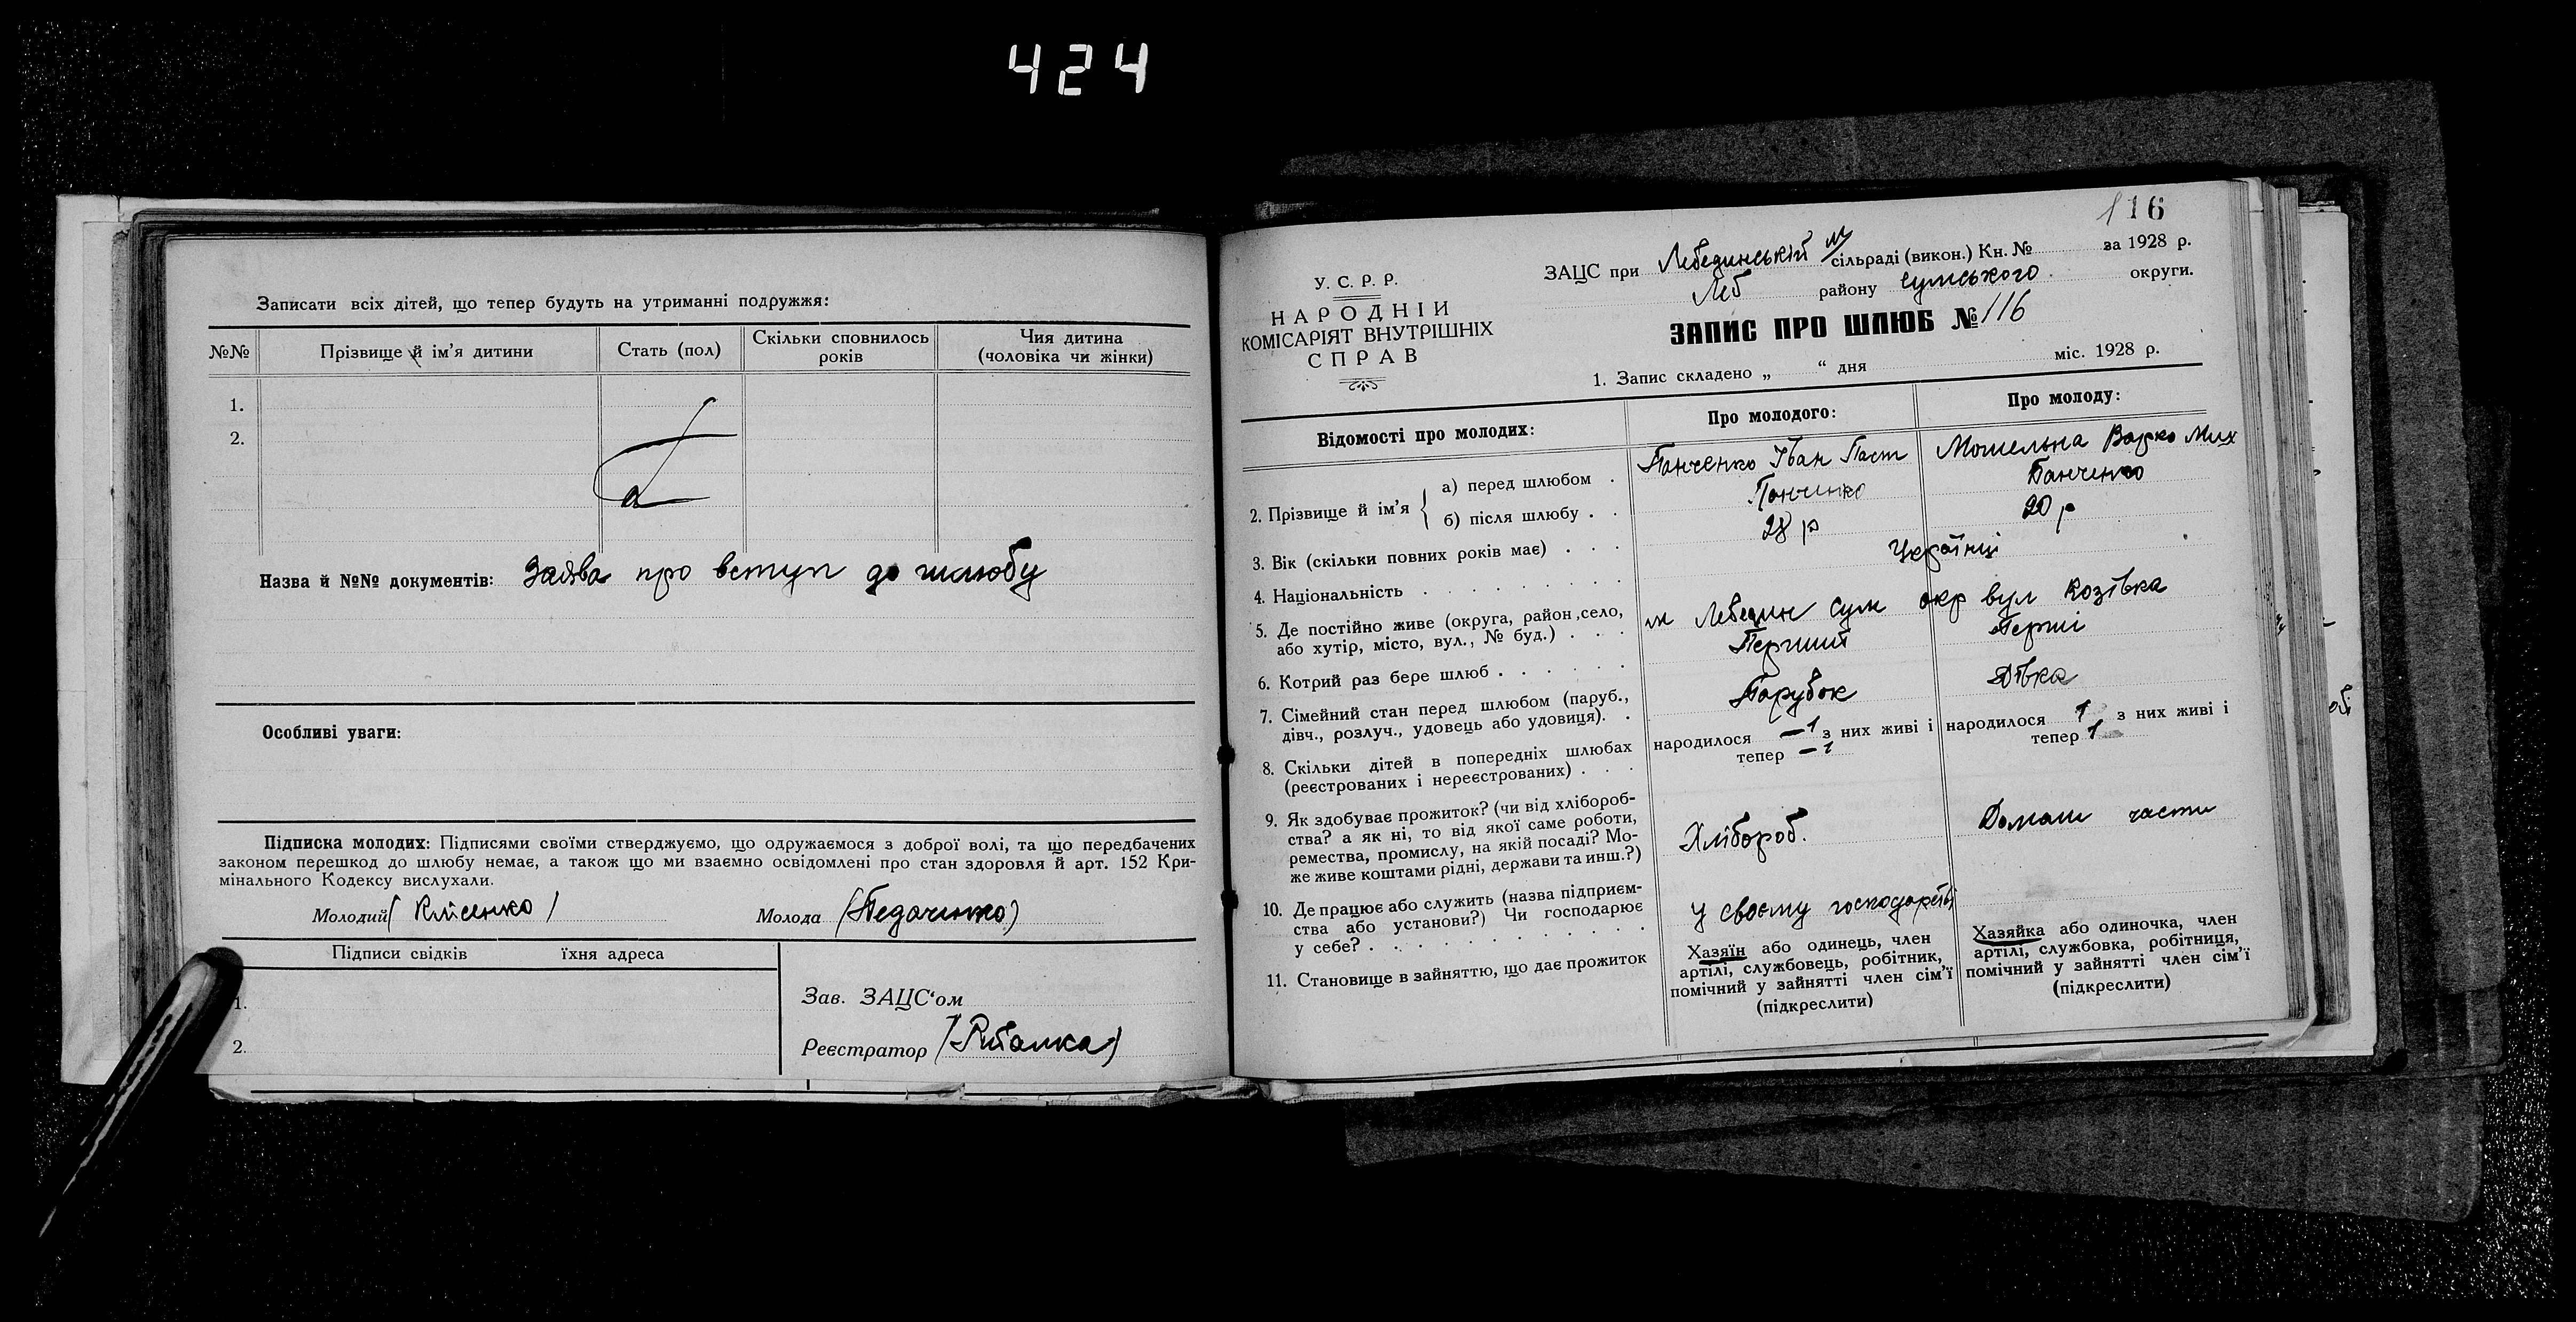 424
Записати всіх дітей, що тепер будуть на утриманні подружжя:
№№ Прізвище й ім'я дитини Стать (пол) Скільки сповнилось років Чия дитина (чоловіка чи жінки)
1.
2.
Назва й №№ документів: Заява про вступ до шлюбу
Особливі уваги:
Підписка молодих: Підписями своїми стверджуємо, що одружаємося з доброї волі, та що передбачених
законом перешкод до шлюбу немає, а також що ми взаємно освідомлені про стан здоровля й арт. 152 Кри-
мінального Кодексу вислухали.
Молодий (Клисенко) Молода (Педаченко)
Підписи свідків їхня адреса
1.
2.
Зав. ЗАЦС'ом
Реєстратор
116
У. С. Р. Р.
НАРОДНІЙ
КОМІСАРІЯТ ВНУТРІШНІХ
СПРАВ
ЗАЦС при Лебединській м сільраді (викон.) Кн. № за 1928 р.
Леб району Сумського округи.
ЗАПИС ПРО ШЛЮБ № 116
1. Запис складено „ “ дня міс. 1928 р.
Відомості про молодих: Про молодого: Про молоду:
2. Прізвище й ім'я
а) перед шлюбом . Панченко Іван Паст Мошельна Варко Мих
б) після шлюбу . . Панченко Панченко
3. Вік (скільки повних років має) . . . 28 р 20 р
4. Національність . . . . . . . Українці
5. Де постійно живе (округа, район, село,
або хутір, місто, вул., № буд.) . . . м Лебедин Сум окр вул Козівка
6. Котрий раз бере шлюб . . . . . . Перший Перші
7. Сімейний стан перед шлюбом (паруб.,
дівч., розлуч., удовець або удовиця). . Парубок Дівка
8. Скільки дітей в попередніх шлюбах
(реєстрованих і нереєстрованих) . . .
народилося — 1 з них живі і
тепер — 1
народилося 1 з них живі і
тепер 1
9. Як здобуває прожиток? (чи від хлібороб-
ства? а як ні, то від якої саме роботи,
ремества, промислу, на якій посаді? Мо-
же живе коштами рідні, держави та инш.?)
Хлібороб.
Домаш части
10. Де працює або служить (назва підприєм-
ства або установи?) Чи господарює
у себе? . . . . . . . . . . .
У своєму господарстві
11. Становище в зайняттю, що дає прожиток
Хазяїн або одинець, член
артілі, службовець, робітник,
помічний у зайнятті член сім'ї
(підкреслити)
Хазяйка або одиночка, член
артілі, службовка, робітниця,
помічний у зайнятті член сім'ї
(підкреслити)